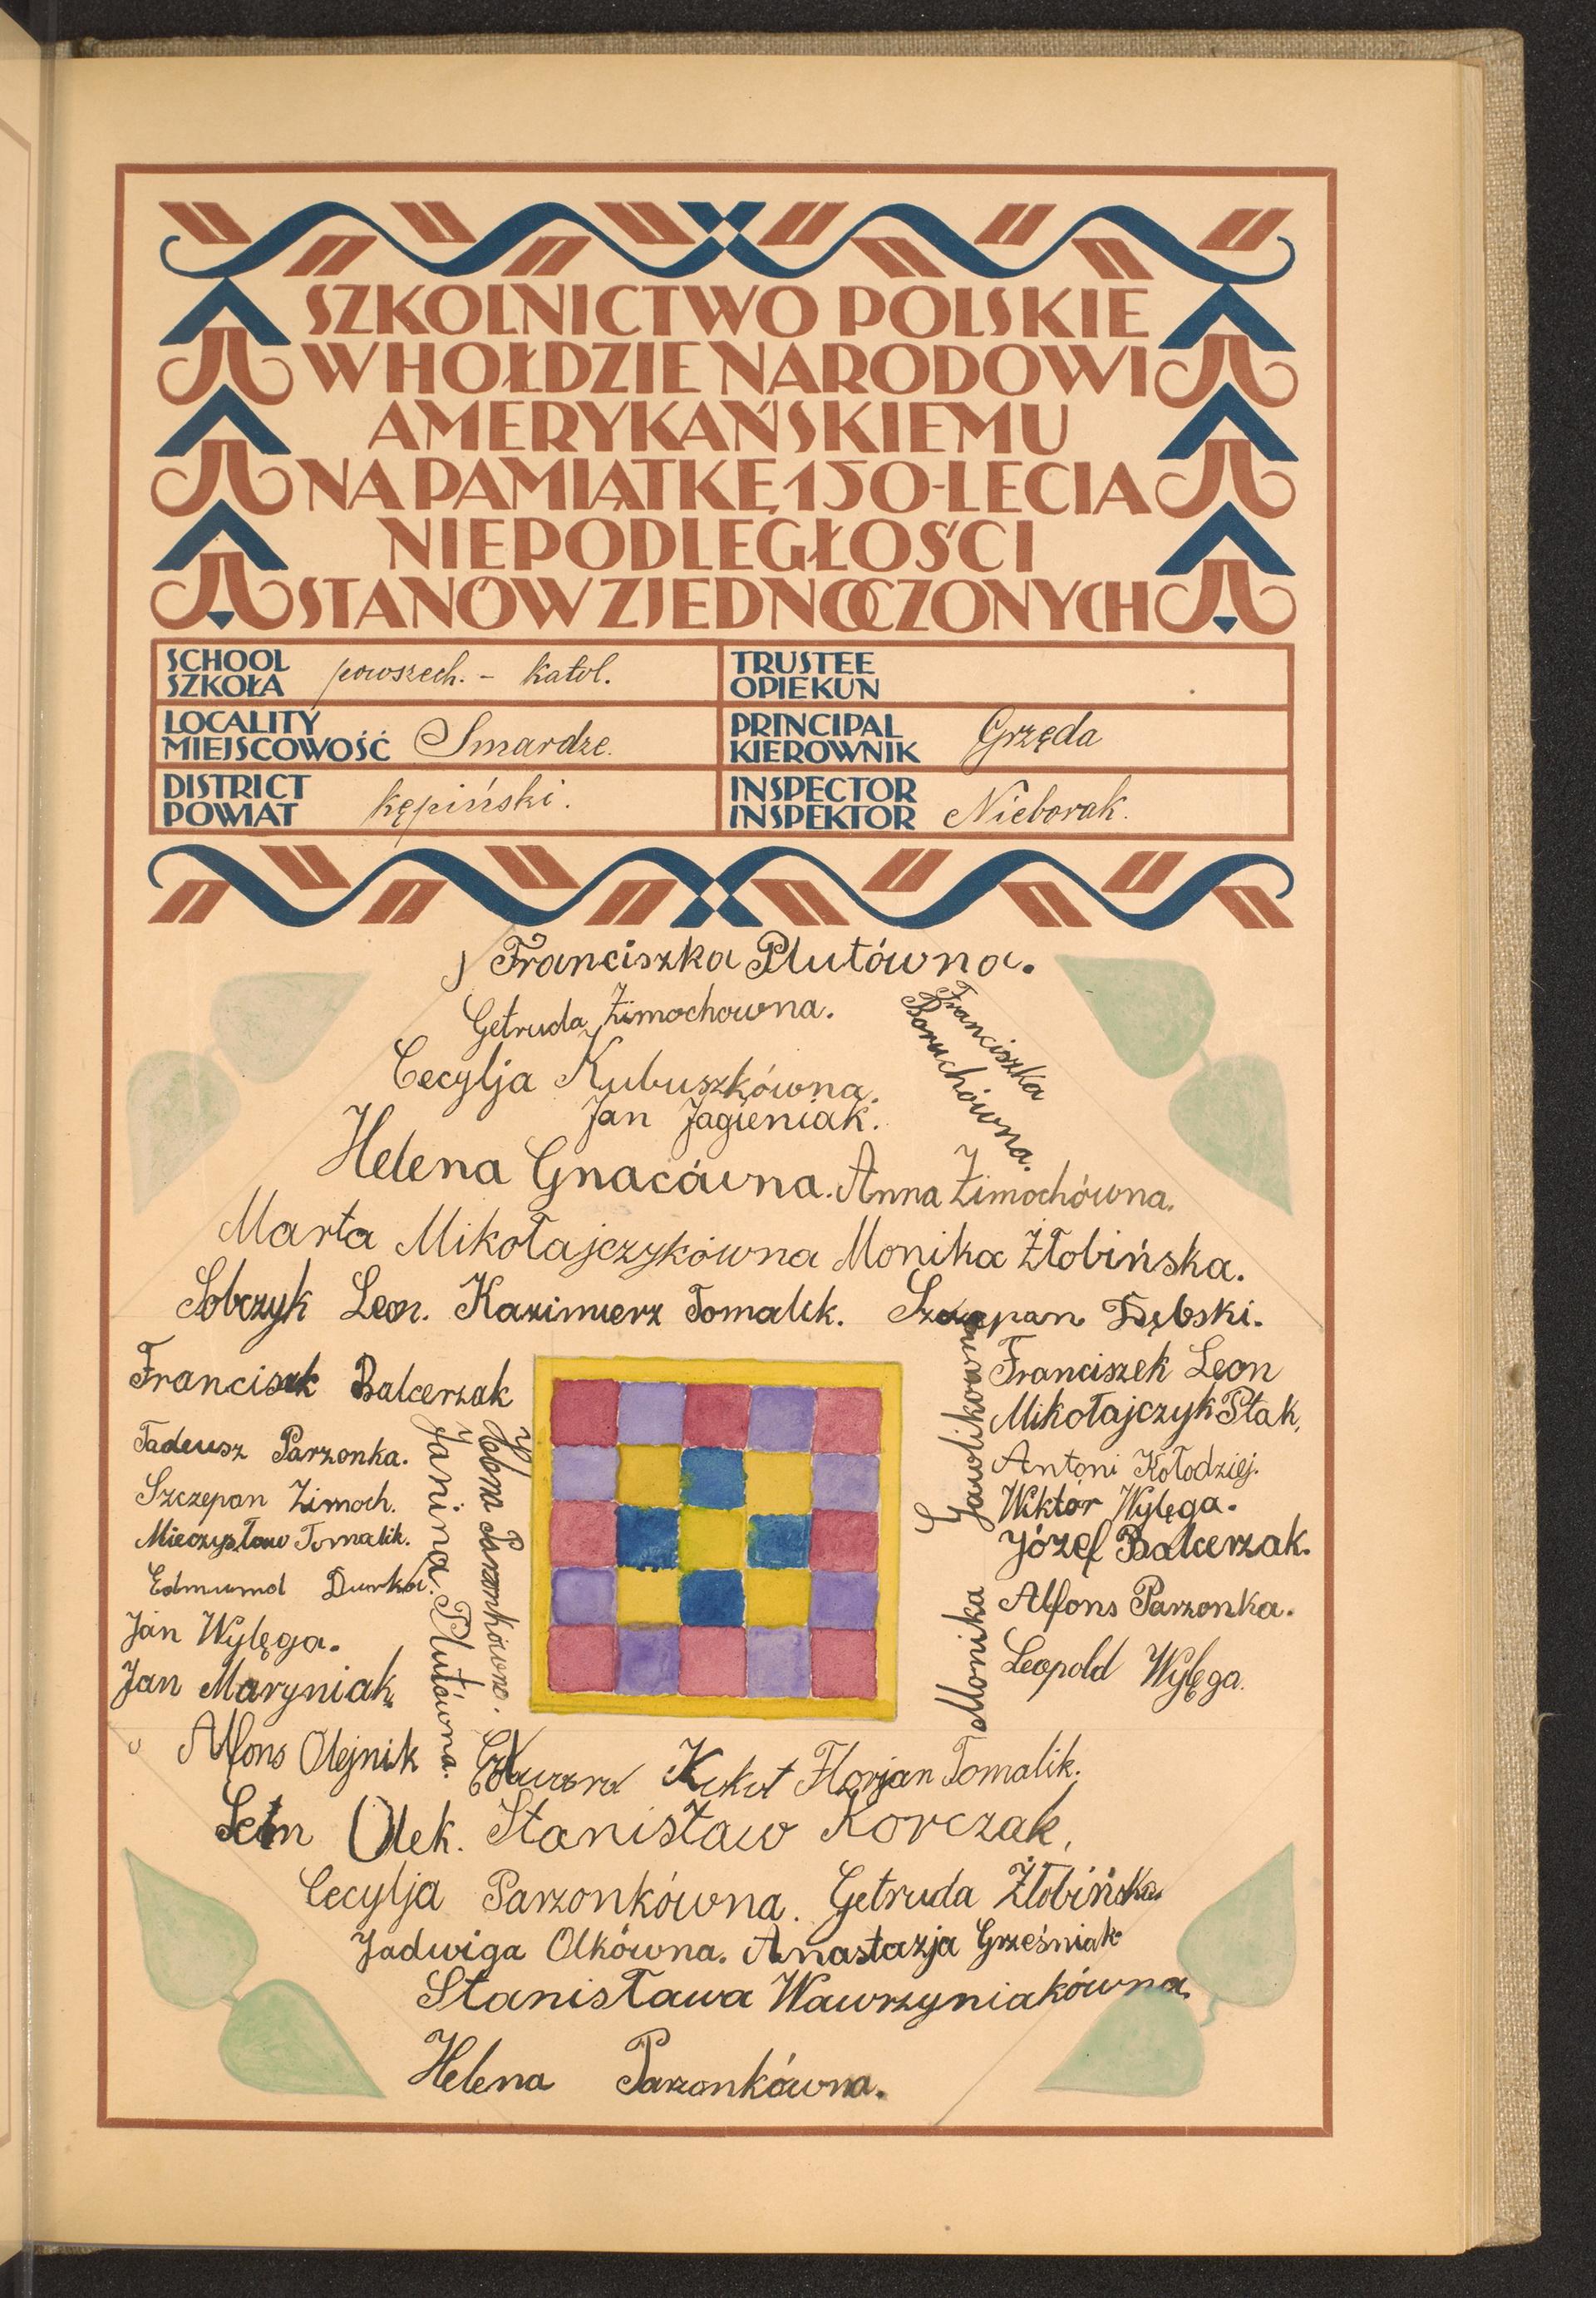 SZKOLNICTWO POLSKIE
W HOŁDZIE NARODOWI
AMERYKAŃSKIEMU
NA PAMIĄTKĘ 150-LECIA
NIEPODLEGŁOŚCI
STANÓW ZJEDNOCZONYCH
SCHOOL
SZKOŁA
powszech. - katol.
TRUSTEE
OPIEKUN
LOCALITY
MIEJSCOWOŚĆ
Smardze.
PRINCIPAL
KIEROWNIK
Grzęda
DISTRICT
POWIAT
kępiński.
INSPECTOR
INSPEKTOR
Nieborak.
Franciszka Plutówna.
Getruda Zimochowna.
Franciszka
Boruchówna.
Cecylja Kubuszkówna.
Jan Jagieniak.
Helena Gnacówna. Anna Zimochówna.
Marta Mikołajczykówna Monika Żłobińska.
Sobczyk Leon. Kazimierz Tomalik. Szczepan Dębski.
Franciszek Balcerzak
Tadeusz Parzonka.
Szczepan Zimoch.
Mieczysław Tomalik.
Edmund Durka.
Jan Wylęga.
Jan Maryniak.
Alfons Olejnik
Janina Plutówna.
Helena Parzonkówna.
Monika Gawlikowna
Franciszek Leon
Mikołajczyk Ptak.
Antoni Kołodziej.
Wiktór Wylęga.
Józef Balcerzak.
Alfons Parzonka.
Leopold Wylęga.
Edward Kukut Florjan Tomalik.
Olek. Stanisław Korczak.
Cecylja Parzonkówna. Getruda Żłobińska.
Jadwiga Olkówna. Anastazja Grześniak
Stanisława Wawrzyniakówna
Helena Parzonkówna.